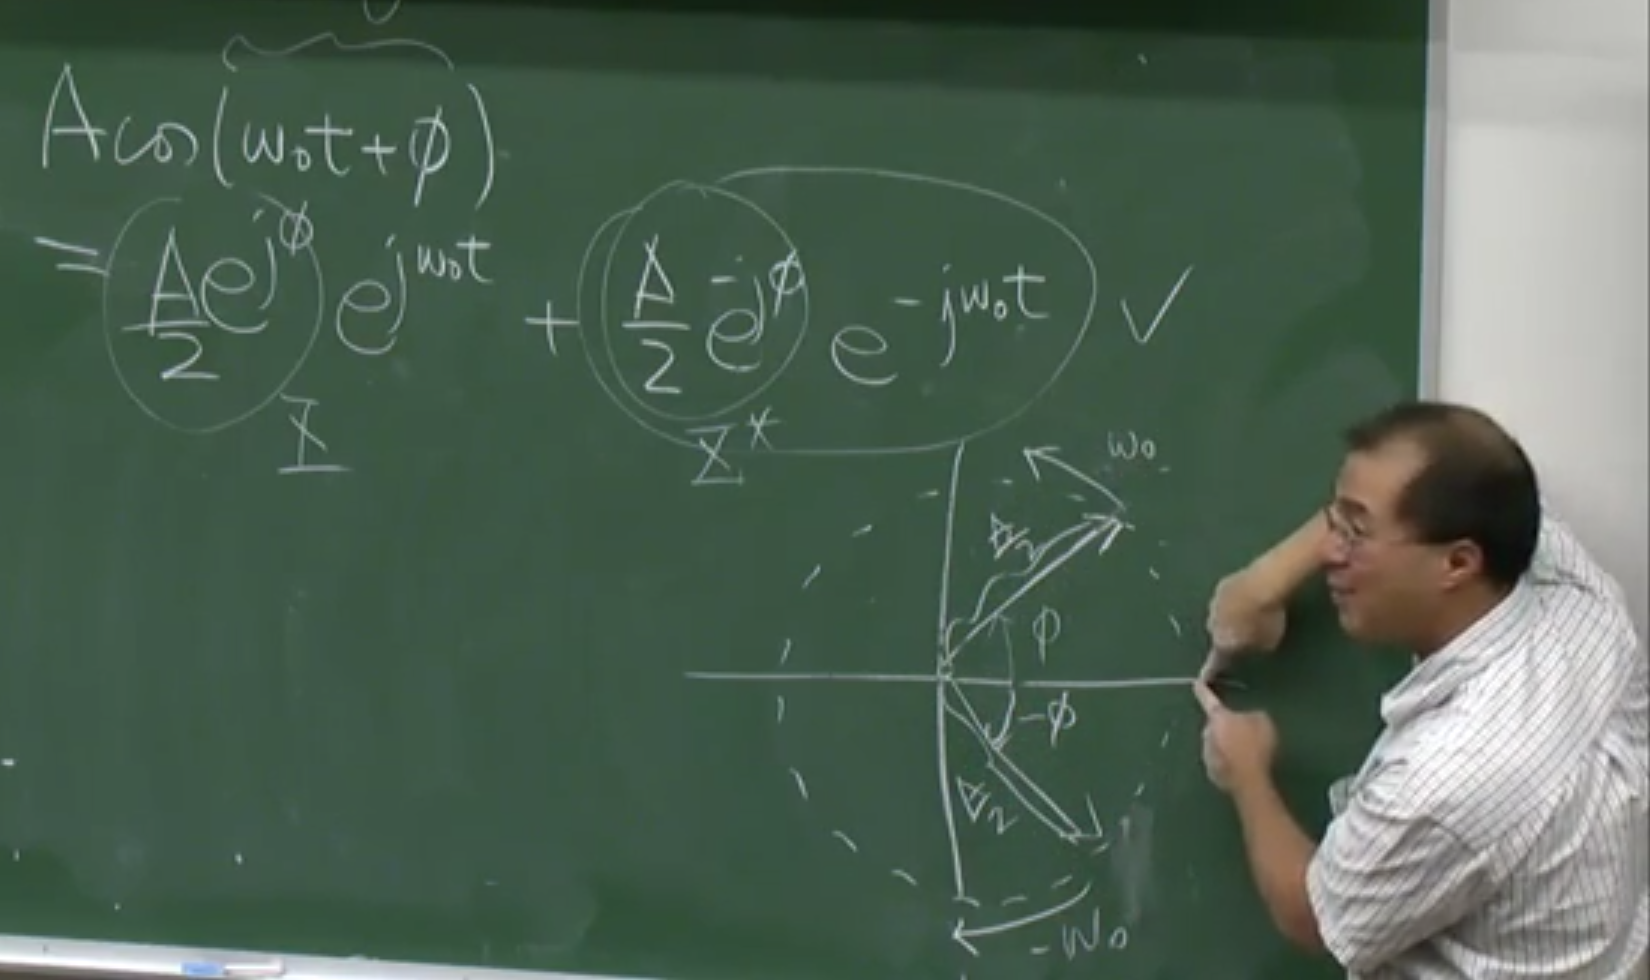 A cos(ω₀t+φ)
= A/2 e^{jφ} e^{jω₀t} + A/2 e^{-jφ} e^{-jω₀t} ✓
X
X*
ω₀
A/2
φ
-φ
A/2
-ω₀